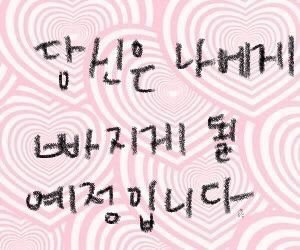 당신은 나에게
빠지게 될
예정입니다